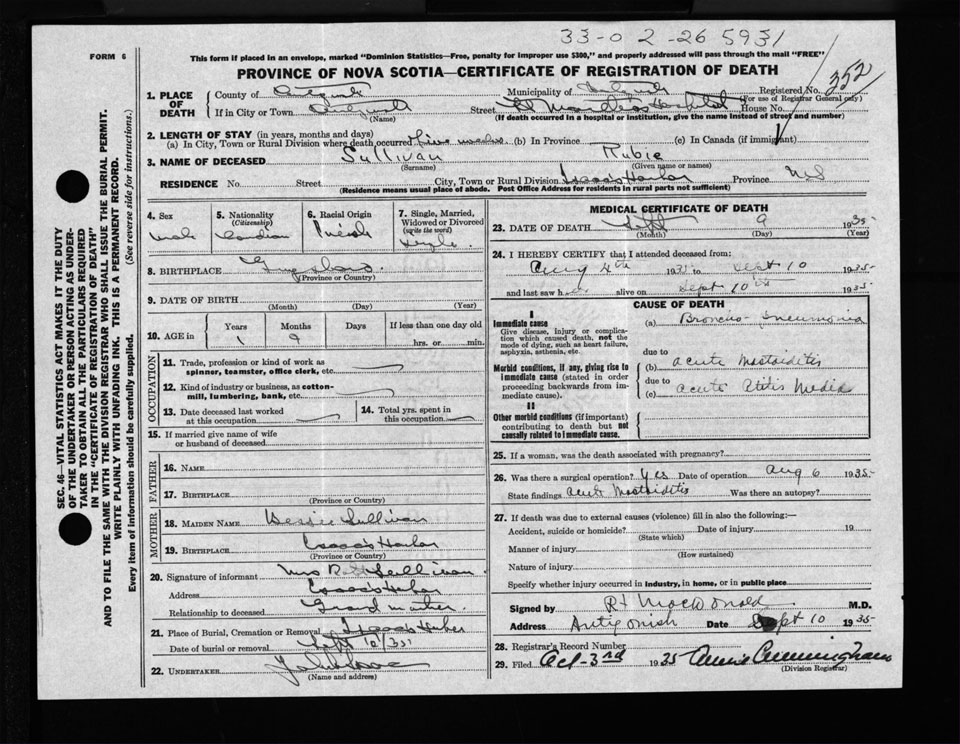 33-0 2-26 5931
FORM 6
This form if placed in an envelope, marked "Dominion Statistics—Free, penalty for improper use $300," and properly addressed will pass through the mail "FREE"
PROVINCE OF NOVA SCOTIA—CERTIFICATE OF REGISTRATION OF DEATH
352
1. PLACE OF DEATH
County of Municipality of Registered No.
(For use of Registrar General only)
If in City or Town Street St Martha's Hospital House No.
(Name) (If death occurred in a hospital or institution, give the name instead of street and number)
2. LENGTH OF STAY (in years, months and days)
(a) In City, Town or Rural Division where death occurred five weeks (b) In Province (c) In Canada (if immigrant)
3. NAME OF DECEASED Sullivan Rubie
(Surname) (Given name or names)
RESIDENCE No. Street City, Town or Rural Division Isaac's Harbor Province N.S.
(Residence means usual place of abode. Post Office Address for residents in rural parts not sufficient)
4. Sex
Male
5. Nationality
(Citizenship)
Canadian
6. Racial Origin
7. Single, Married, Widowed or Divorced
(write the word)
Single
8. BIRTHPLACE
(Province or Country)
9. DATE OF BIRTH
(Month) (Day) (Year)
10. AGE in
Years Months Days If less than one day old
1 9 hrs. or min.
OCCUPATION
11. Trade, profession or kind of work as
spinner, teamster, office clerk, etc.
12. Kind of industry or business, as cotton-
mill, lumbering, bank, etc.
13. Date deceased last worked
at this occupation
14. Total yrs. spent in
this occupation
15. If married give name of wife
or husband of deceased
FATHER
16. NAME
17. BIRTHPLACE
(Province or Country)
MOTHER
18. MAIDEN NAME Bessie Sullivan
19. BIRTHPLACE Isaac's Harbor
(Province or Country)
20. Signature of informant Mrs Sullivan
Address Isaac's Harbor
Relationship to deceased Grand mother
21. Place of Burial, Cremation or Removal Isaac's Harbor
Date of burial or removal Sept 10/35
22. UNDERTAKER
(Name and address)
MEDICAL CERTIFICATE OF DEATH
23. DATE OF DEATH Sept 9 1935
(Month) (Day) (Year)
24. I HEREBY CERTIFY that I attended deceased from:
Aug 4th 1935 to Sept 10 1935
and last saw h alive on Sept 10th 1935
CAUSE OF DEATH
I
Immediate cause
Give disease, injury or complica-
tion which caused death, not the
mode of dying, such as heart failure,
asphyxia, asthenia, etc.
(a) Broncho-Pneumonia
due to
Morbid conditions, if any, giving rise to
immediate cause (stated in order
proceeding backwards from im-
mediate cause).
(b) Acute Mastoiditis
due to
(c) Acute Otitis Media
II
Other morbid conditions (if important)
contributing to death but not
causally related to immediate cause.
25. If a woman, was the death associated with pregnancy?
26. Was there a surgical operation? Yes Date of operation Aug 6 1935
State findings Acute Mastoiditis Was there an autopsy?
27. If death was due to external causes (violence) fill in also the following:—
Accident, suicide or homicide? Date of injury 19
(State which)
Manner of injury
(How sustained)
Nature of injury
Specify whether injury occurred in industry, in home, or in public place
Signed by MacDonald M.D.
Address Antigonish Date Sept 10 1935
28. Registrar's Record Number
29. Filed Oct-3rd 1935 Annie Cunningham
(Division Registrar)
SEC. 46—VITAL STATISTICS ACT MAKES IT THE DUTY
OF THE UNDERTAKER OR PERSON ACTING AS UNDER-
TAKER TO OBTAIN ALL THE PARTICULARS REQUIRED
IN THE "CERTIFICATE OF REGISTRATION OF DEATH"
AND TO FILE THE SAME WITH THE DIVISION REGISTRAR WHO SHALL ISSUE THE BURIAL PERMIT.
WRITE PLAINLY WITH UNFADING INK. THIS IS A PERMANENT RECORD.
Every item of information should be carefully supplied. (See reverse side for instructions.)